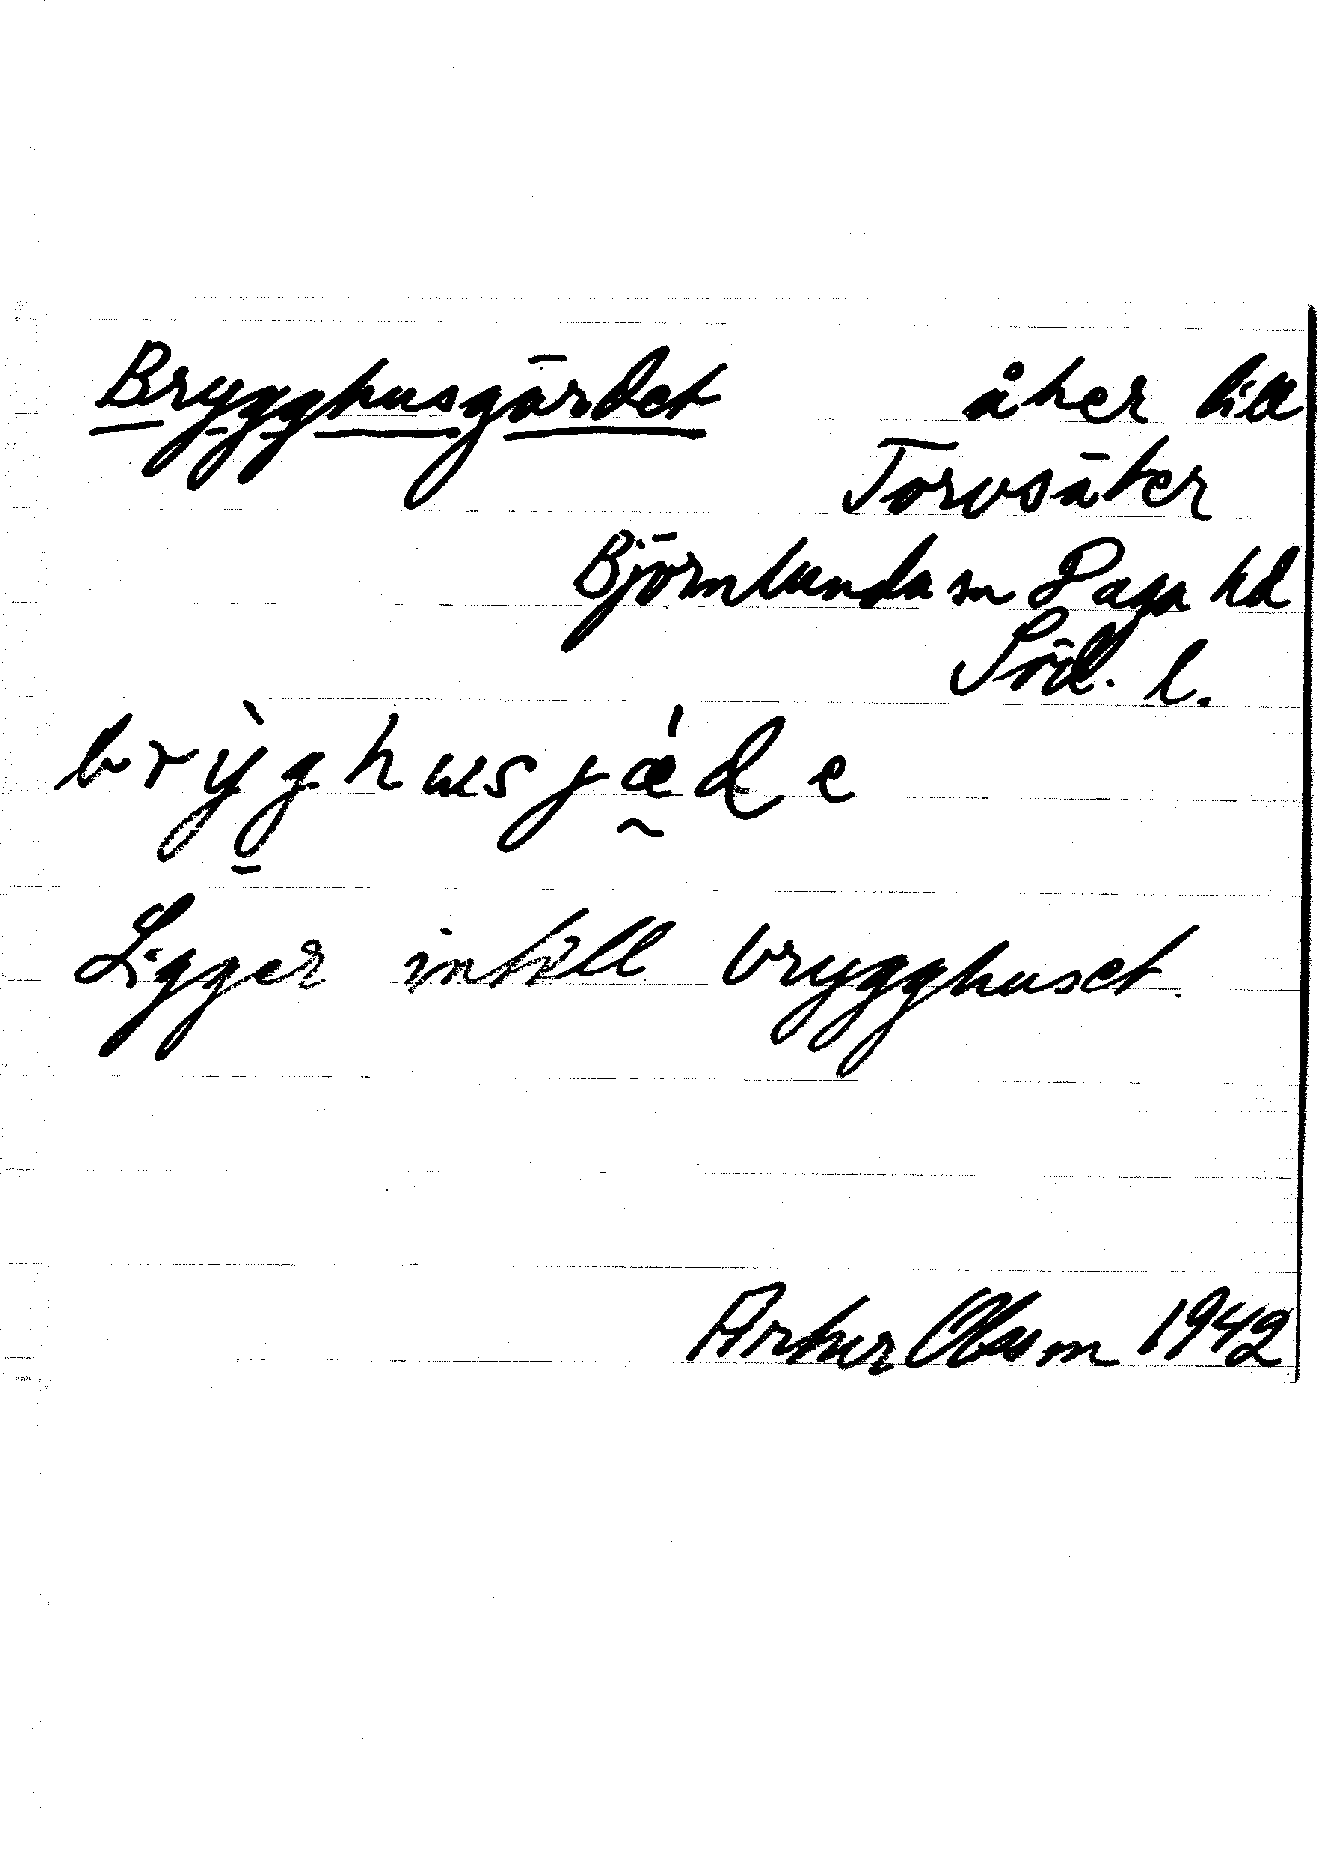 Brygghusgärdet åker till
Torvsäter
Björnlunda sn Daga hd
Söd. l.
brỳg̱husjǽ̰de
Ligger intill brygghuset.
Artur Olsson 1942